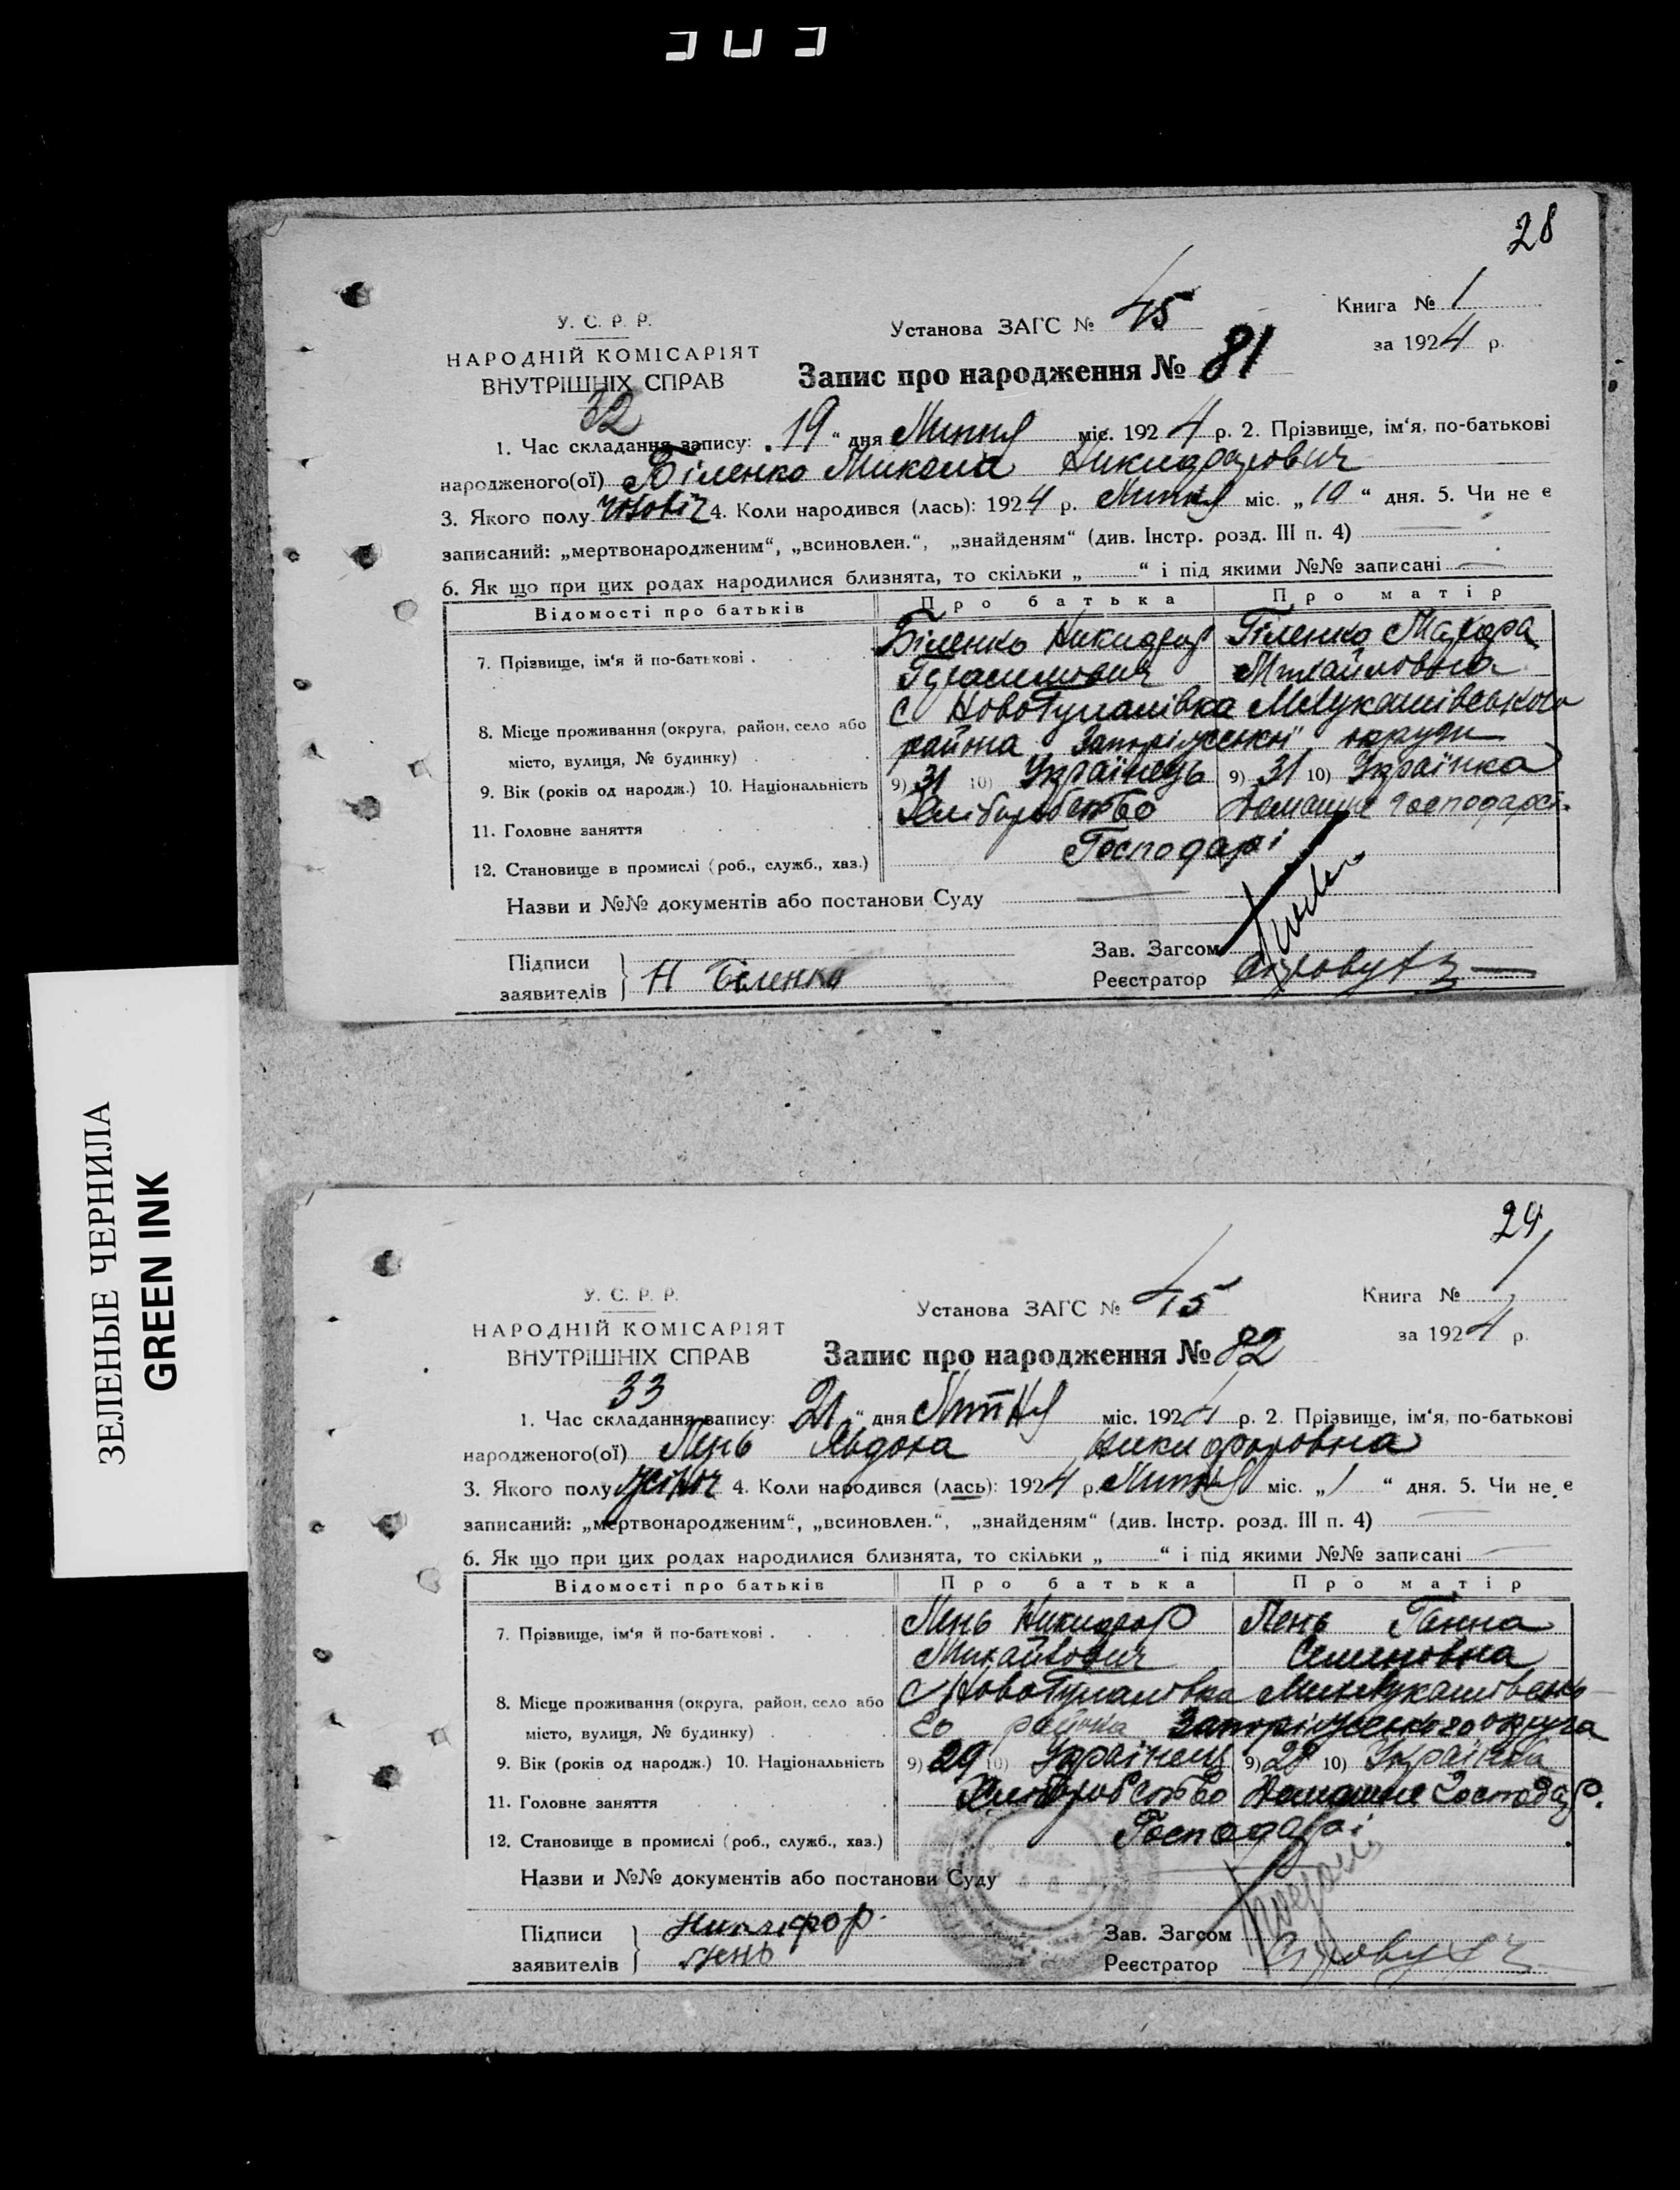 28
У. С. Р. Р.
НАРОДНІЙ КОМІСАРІЯТ
ВНУТРІШНІХ СПРАВ
Установа ЗАГС № 45
Книга № 1
за 1924 р.
Запис про народження № 81
32
1. Час складання запису: „19“ дня Липня міс. 1924 р. 2. Прізвище, ім‘я, по-батькові
народженого(ої) Біленко Микола Никифорович
3. Якого полу чоловіч 4. Коли народився (лась): 1924 р. Липня міс. „10“ дня. 5. Чи не є
записаний: „мертвонародженим“, „всиновлен.“, „знайденям“ (див. Інстр. розд. III п. 4)
6. Як що при цих родах народилися близнята, то скільки „ “ і під якими №№ записані
Відомості про батьків Про батька Про матір
7. Прізвище, ім‘я й по-батькові . Біленко Никифор Біленко
Герасимович Михайловна
8. Місце проживання (округа, район, село або с Новотупалівка М
місто, вулиця, № будинку) . района Запоріжської округи
9. Вік (років од народж.) 10. Національність 9) 31 10) Українець 9) 31 10) Українка
11. Головне заняття Хліборобство Домашнє господарст.
12. Становище в промислі (роб., служб., хаз.) Господарі
Назви и №№ документів або постанови Суду
Підписи
заявителів Н Біленко
Зав. Загсом
Реєстратор
ЗЕЛЕНЫЕ ЧЕРНИЛА
GREEN INK
29
У. С. Р. Р.
НАРОДНІЙ КОМІСАРІЯТ
ВНУТРІШНІХ СПРАВ
Установа ЗАГС № 45
Книга № 1
за 1924 р.
Запис про народження № 82
33
1. Час складання запису: 21 “ дня Липня міс. 1924 р. 2. Прізвище, ім‘я, по-батькові
народженого(ої) Лень Явдоха Никифоровна
3. Якого полу жіноч 4. Коли народився (лась): 1924 р. Липня міс. „1“ дня. 5. Чи не є
записаний: „мертвонародженим“, „всиновлен.“, „знайденям“ (див. Інстр. розд. III п. 4)
6. Як що при цих родах народилися близнята, то скільки „ “ і під якими №№ записані
Відомості про батьків Про батька Про матір
7. Прізвище, ім‘я й по-батькові . Лень Никифор Лень Ганна
Михайлович Семеновна
8. Місце проживання (округа, район, село або с Новотупалівка
місто, вулиця, № будинку) . района Запоріжського округа
9. Вік (років од народж.) 10. Національність 9) 29 10) Українець 9) 28 10) Українка
11. Головне заняття Хліборобство Домашнє господар.
12. Становище в промислі (роб., служб., хаз.) Господарі
Назви и №№ документів або постанови Суду
Підписи Никифор
заявителів Лень
Зав. Загсом
Реєстратор